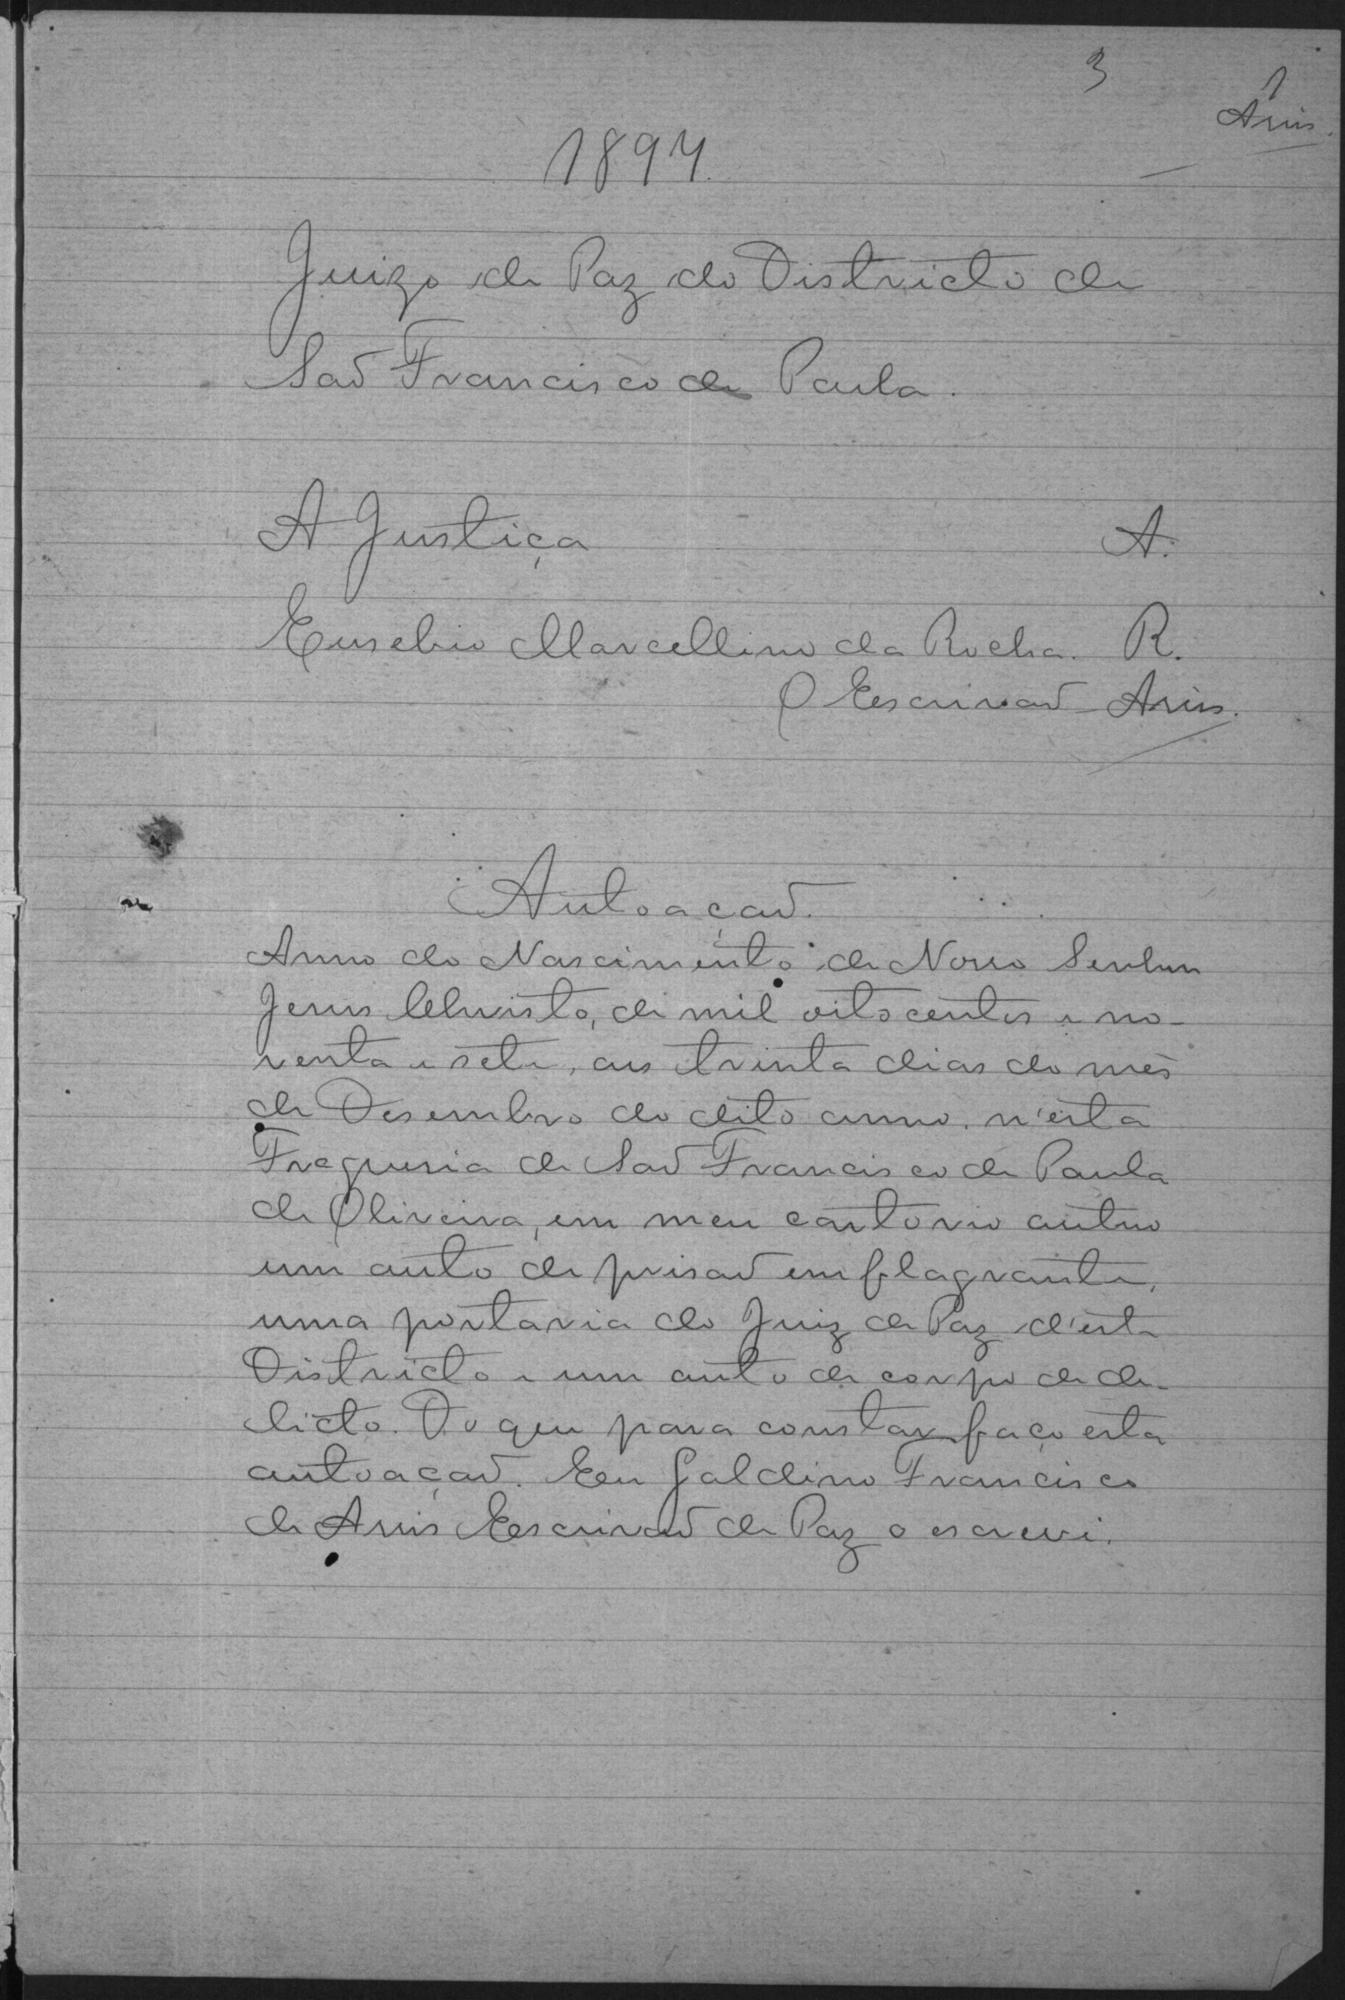 3
1
Assis.
1897.
Juizo de Paz do Districto de
Saõ Francisco de Paula.
A Justiça A.
Eusebio Marcellino da Rocha. R.
O Escrivaõ Assis.
Autoaçaõ.
Anno do Nascimento de Nosso Senhor
Jesus Christo, de mil oitocentos e no-
venta e sete, aos trinta dias do mês
de Desembro do dito anno, n'esta
Freguesia de Saõ Francisco de Paula
de Oliveira, em meu cartorio autuo
um auto de prisaõ em flagrante,
uma portaria do Juiz de Paz d'este
Districto e um auto de corpo de de-
licto. Do que para constar faço esta
autoaçaõ. Eu Galdino Francisco
de Assis Escrivaõ de Paz o escrevi.